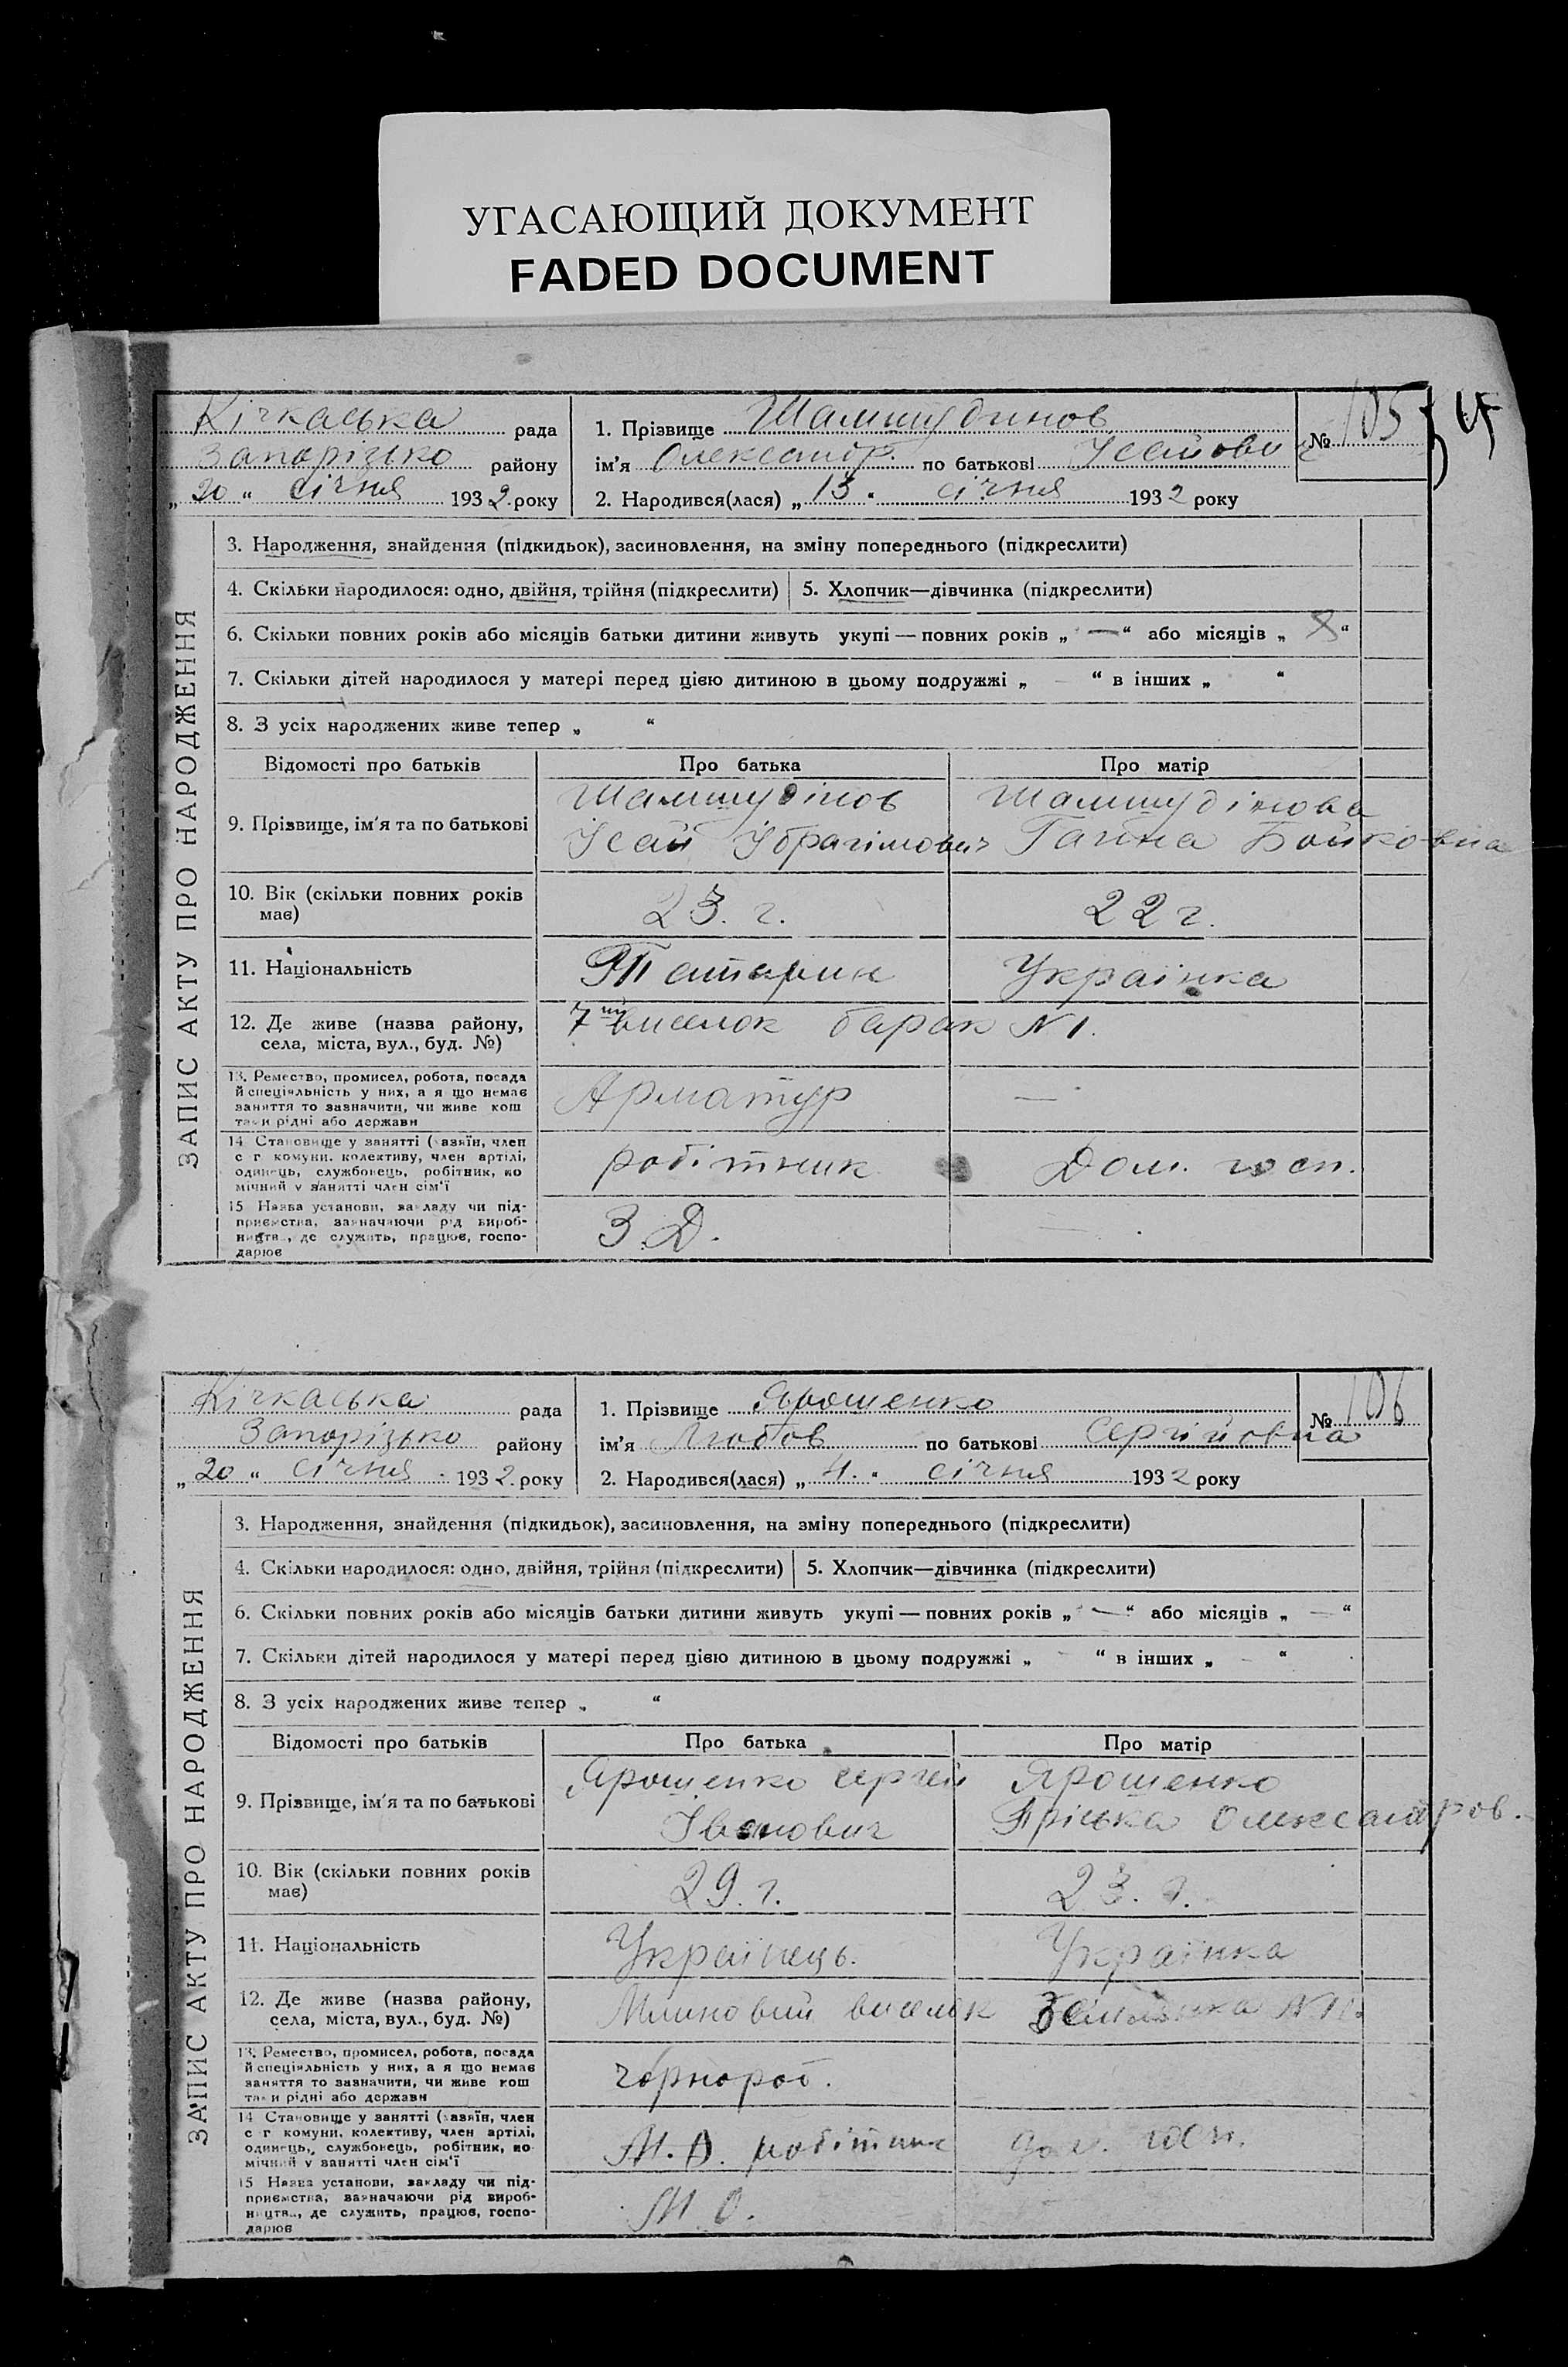 УГАСАЮЩИЙ ДОКУМЕНТ
FADED DOCUMENT
Кічкаська рада
Запорізько району
„20“ січня 1932 року
1. Прізвище Шамшудинов
ім'я Олександр по батькові Ісайови
№ 105
2. Народився(лася) „13“ січня 1932 року
ЗАПИС АКТУ ПРО НАРОДЖЕННЯ
3. Народження, знайдення (підкидьок), засиновлення, на зміну попереднього (підкреслити)
4. Скільки народилося: одно, двійня, трійня (підкреслити)
5. Хлопчик—дівчинка (підкреслити)
6. Скільки повних років або місяців батьки дитини живуть укупі — повних років „—“ або місяців „8“
7. Скільки дітей народилося у матері перед цією дитиною в цьому подружжі „ “ в інших „ “
8. З усіх народжених живе тепер „ “
Відомості про батьків
Про батька
Про матір
9. Прізвище, ім'я та по батькові
Шамшудінов
Ісай Ібрагімович
Шамшудінова
Ганна Бойковна
10. Вік (скільки повних років має)
23. г.
22 г.
11. Національність
Татарин
Українка
12. Де живе (назва району, села, міста, вул., буд. №)
7ий виселок барак N 1.
13. Ремество, промисел, робота, посада й спеціяльність у них, а я що немає заняття то зазначити, чи живе кош та и рідні або держави
Арматур
—
14 Становище у занятті (хазяїн, член с г комуни, колективу, член артілі, одинець, службовець, робітник, помічний у занятті член сім'ї
робітник
Дом. госп.
15 Назва установи, закладу чи підприємства, зазначаючи рід виробництва, де служить, працює, господарює
З.Д.
Кічкаська рада
Запорізько району
„20“ січня 1932 року
1. Прізвище Ярошенко
ім'я Любов по батькові Сергійовна
№ 106
2. Народився(лася) „4.“ січня 1932 року
ЗАПИС АКТУ ПРО НАРОДЖЕННЯ
3. Народження, знайдення (підкидьок), засиновлення, на зміну попереднього (підкреслити)
4. Скільки народилося: одно, двійня, трійня (підкреслити)
5. Хлопчик—дівчинка (підкреслити)
6. Скільки повних років або місяців батьки дитини живуть укупі — повних років „—“ або місяців „—“
7. Скільки дітей народилося у матері перед цією дитиною в цьому подружжі „ “ в інших „ “
8. З усіх народжених живе тепер „ “
Відомості про батьків
Про батька
Про матір
9. Прізвище, ім'я та по батькові
Ярошенко Сергей
Іванович
Ярошенко
Олександров.
10. Вік (скільки повних років має)
29. г.
23. г.
11. Національність
Українець.
Українка
12. Де живе (назва району, села, міста, вул., буд. №)
Млиновий виселок Землянка
13. Ремество, промисел, робота, посада й спеціяльність у них, а я що немає заняття то зазначити, чи живе кош та и рідні або держави
чорнороб.
14 Становище у занятті (хазяїн, член с г комуни, колективу, член артілі, одинець, службовець, робітник, помічний у занятті член сім'ї
робітник
дом. госп.
15 Назва установи, закладу чи підприємства, зазначаючи рід виробництва, де служить, працює, господарює
М О.